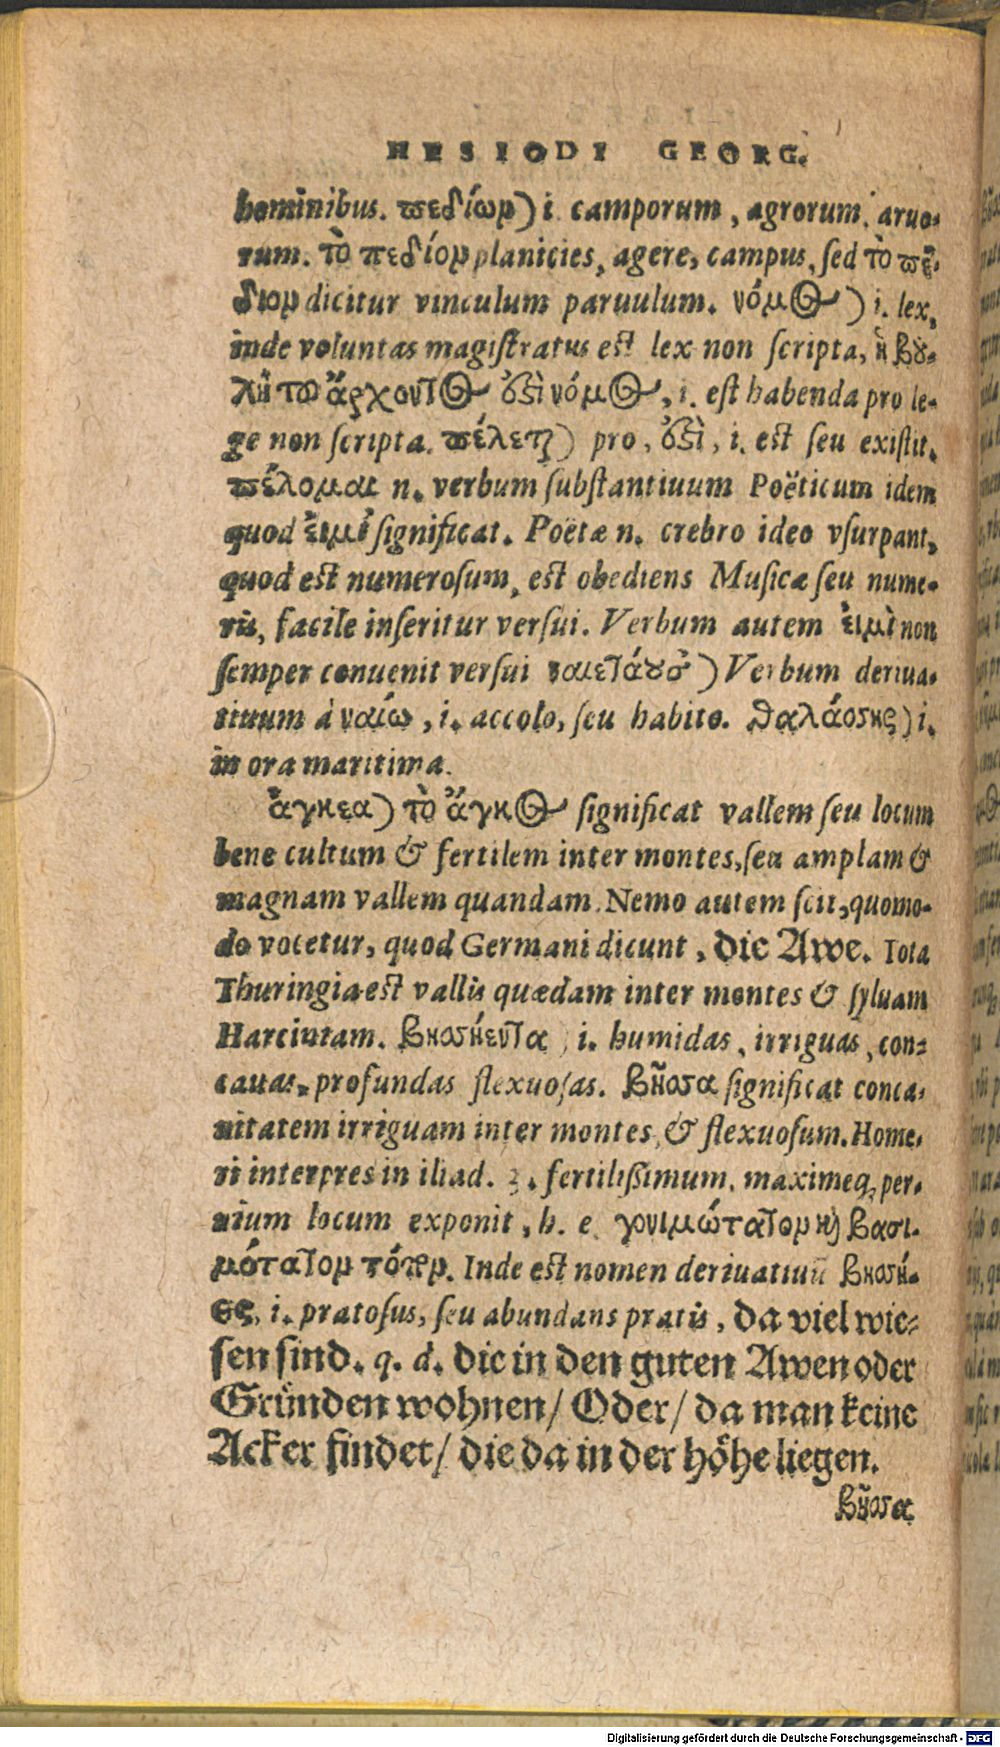 HESIODI GEORG.
hominibus. πεδίων) i. camporum, agrorum, aruo-
rum. τὸ πεδίον planicies, agere, campus, sed τὸ πέ-
διον dicitur vinculum paruulum. νόμος) i. lex,
inde voluntas magistratus est lex non scripta, ἡ βου-
λὴ τοῦ ἄρχοντος ἐστὶ νόμος, i. est habenda pro le-
ge non scripta. πέλεται) pro, ἐστὶ, i. est seu existit.
πέλομαι n. verbum substantiuum Poëticum idem
quod εἰμὶ significat. Poëtæ n. crebro ideo vsurpant,
quod est numerosum, est obediens Musicæ seu nume-
ris, facile inseritur versui. Verbum autem εἰμὶ non
semper conuenit versui ναιετάουσ) Verbum deriua-
tiuum à ναίω, i. accolo, seu habito. θαλάσσης) i.
in ora maritima.
ἄγκεα) τὸ ἄγκος significat vallem seu locum
bene cultum & fertilem inter montes, seu amplam &
magnam vallem quandam. Nemo autem scit, quomo-
do vocetur, quod Germani dicunt, die Awe. Tota
Thuringia est vallis quædam inter montes & syluam
Harciniam. βησσήεντα) i. humidas, irriguas, con-
cauas, profundas flexuosas. βῆσσα significat conca-
uitatem irriguam inter montes, & flexuosum. Home-
ri interpres in iliad. 3. fertilissimum, maximeq; per-
uium locum exponit, h. e. γονιμώτατον καὶ βασι-
μότατον τόπον. Inde est nomen deriuatiuū βησσή-
ες, i. pratosus, seu abundans pratis, da viel wie-
sen sind. q. d. die in den guten Awen oder
Gründen wohnen/ Oder/ da man keine
Acker findet/ die da in der höhe liegen.
βῆσσα
Digitalisierung gefördert durch die Deutsche Forschungsgemeinschaft - DFG